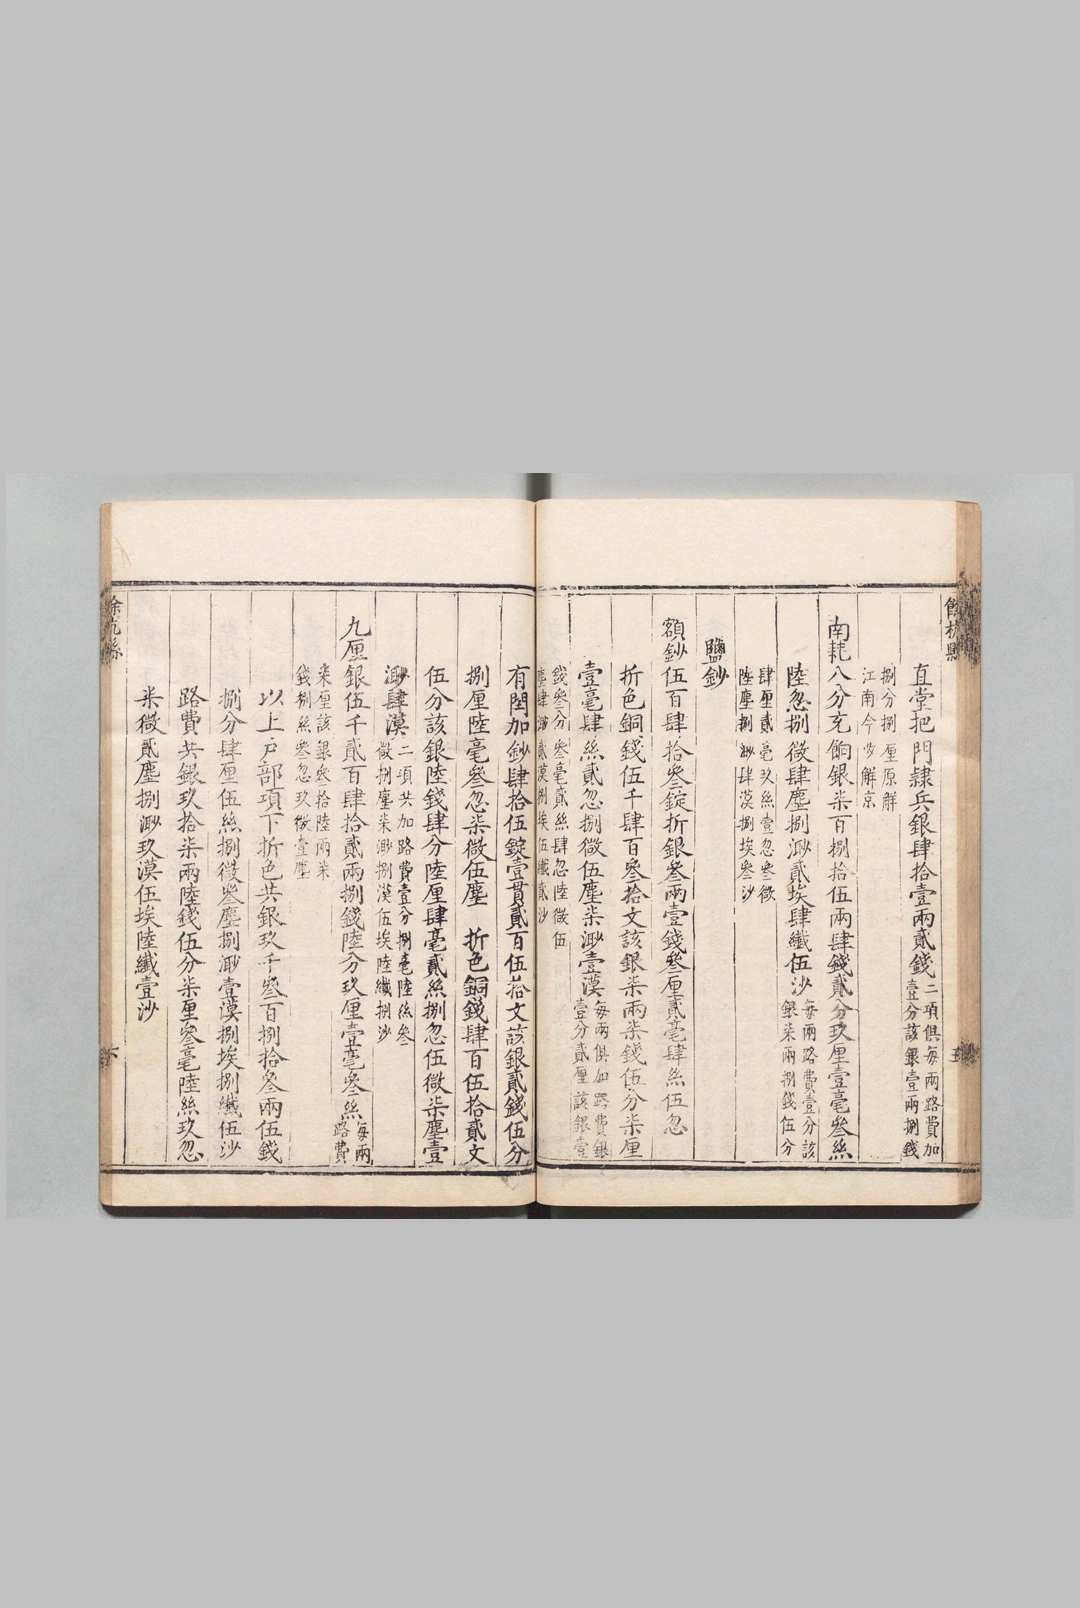 餘杭縣
五
直堂把門隷兵銀肆拾壹兩貳錢二項俱每兩路費加
壹分該銀壹兩捌錢
捌分捌厘原解
江南今改解京
南耗八分充餉銀柒百捌拾伍兩肆錢貳分玖厘壹毫叁絲
陸忽捌微肆塵捌渺貳埃肆纖伍沙每兩路費壹分該
銀柒兩捌錢伍分
肆厘貳毫玖絲壹忽叁微
陸塵捌渺肆漠捌埃叁沙
鹽鈔
額鈔伍百肆拾叁錠折銀叁兩壹錢叁厘貳毫肆絲伍忽
折色銅錢伍千肆百叁拾文該銀柒兩柒錢伍分柒厘
壹毫肆絲貳忽捌微伍塵柒渺壹漠每兩俱加路費銀
壹分貳厘該銀壹
錢叁分叁毫貳絲肆忽陸微伍
塵肆渺貳漠捌埃伍纖貳沙
有閏加鈔肆拾伍錠壹貫貳百伍拾文該銀貳錢伍分
捌厘陸毫叁忽柒微伍塵 折色銅錢肆百伍拾貳文
伍分該銀陸錢肆分陸厘肆毫貳絲捌忽伍微柒塵壹
渺肆漠二項共加路費壹分捌毫陸絲叁
微捌塵柒渺捌漠伍埃陸纖捌沙
九厘銀伍千貳百肆拾貳兩捌錢陸分玖厘壹毫叁絲每兩
路費
柒厘該銀叁拾陸兩柒
錢捌絲叁忽玖微壹塵
以上戶部項下折色共銀玖千叁百捌拾叁兩伍錢
捌分肆厘伍絲捌微叁塵捌渺壹漠捌埃捌纖伍沙
路費共銀玖拾柒兩陸錢伍分柒厘叁毫陸絲玖忽
柒微貳塵捌渺玖漠伍埃陸纖壹沙
餘杭縣
六